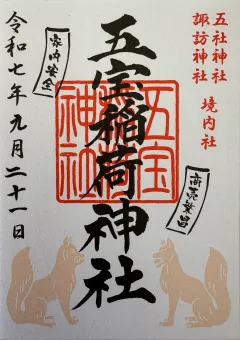 五社神社
諏訪神社
境内社
商売繁昌
五宝稲荷神社
五宝稲荷神社
家内安全
令和七年九月二十一日